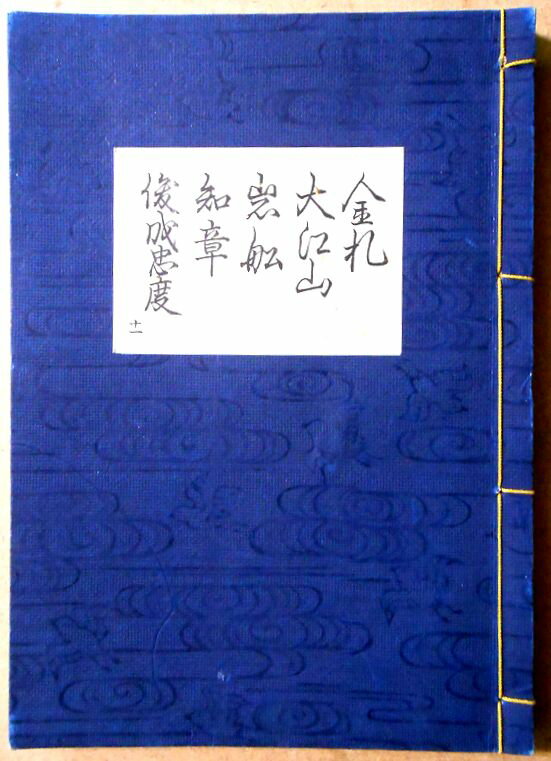 金札
大江山
岩船
知章
俊成忠度
十一